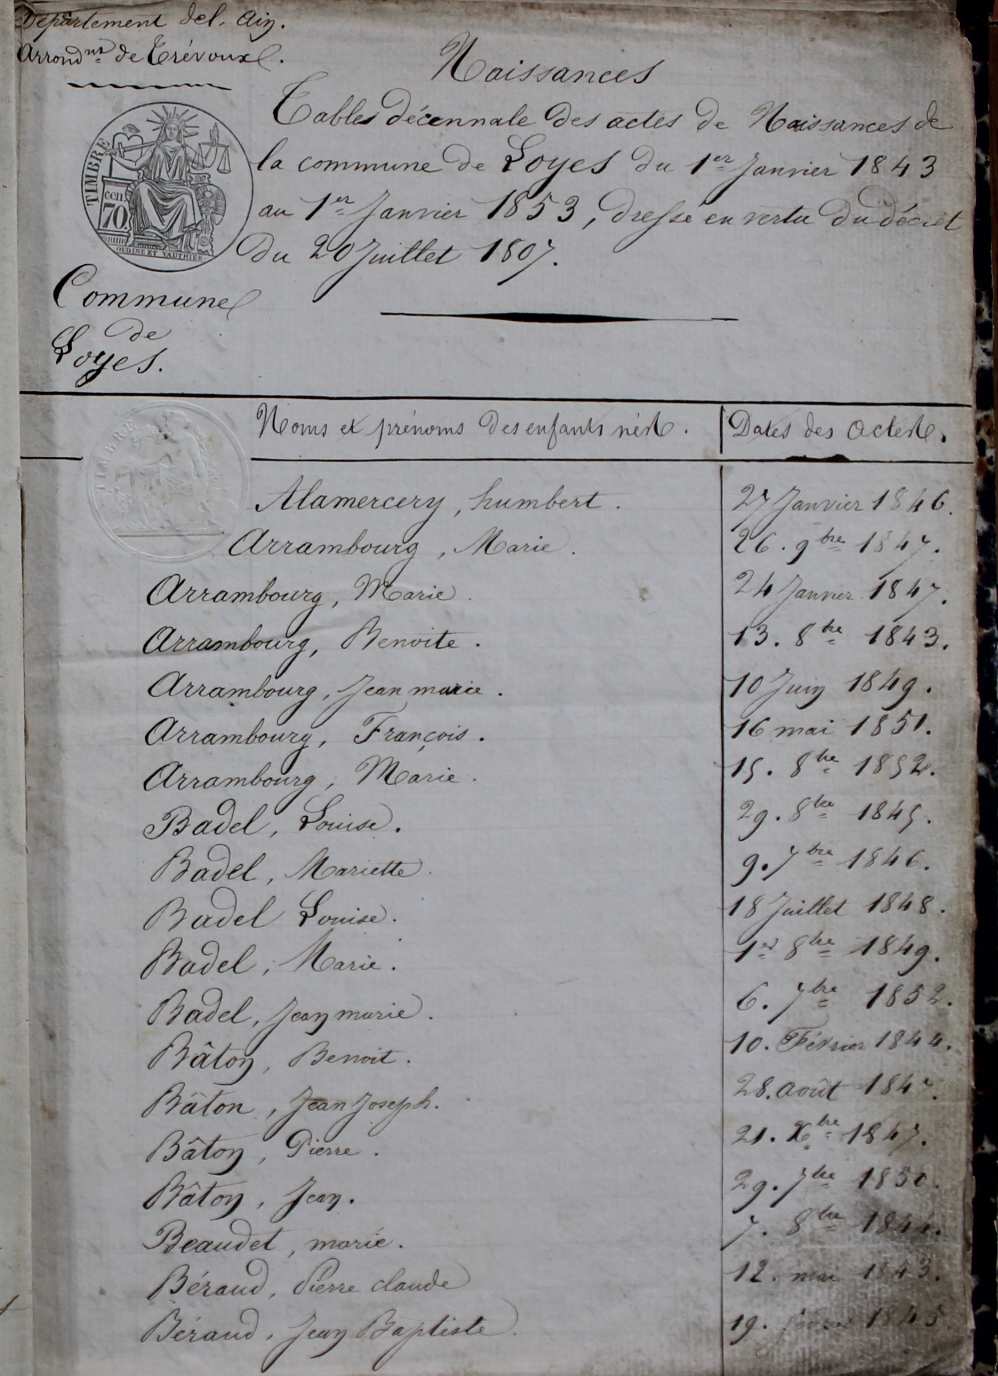 Département del. Ain.
Arrond.nt de Trévoux.
Naissances
Tables décennale des actes de Naissances de
la commune de Loyes du 1er Janvier 1843
au 1er Janvier 1853, dressé en vertu du décret
du 20 Juillet 1807.
TIMBRE
70
Commune
de
Loyes.
Noms et prénoms des enfants nés. Dates des actes.
Alamercery, humbert. 27 Janvier 1846.
Arrambourg, Marie. 26. 9bre 1847.
Arrambourg, Marie. 24 Janvier 1847.
Arrambourg, Benoite. 13. 8bre 1843.
Arrambourg, Jean marie. 10 Juin 1849.
Arrambourg, François. 16 mai 1851.
Arrambourg, Marie. 15. 8bre 1852.
Badel, Louise. 29. 8bre 1845.
Badel, Mariette. 9. 7bre 1846.
Badel Louise. 18 Juillet 1848.
Badel, Marie. 1er 8bre 1849.
Badel, Jean marie. 6. 7bre 1852.
Bâton, Benoit. 10. Février 1844.
Bâton, Jean Joseph. 28. août
Bâton, Pierre. 21. Xbre 1847.
Bâton, Jean. 29. 7bre 1850.
Beaudet, marie. 7. 8bre
Béraud, Pierre claude 12. mai 1843.
Béraud, Jean Baptiste. 19. 1845